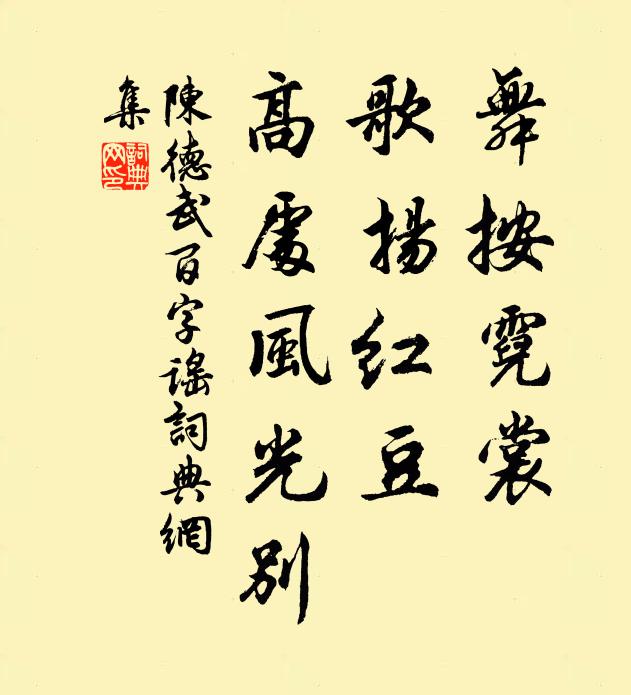 舞按霓裳
歌揚紅豆
高處風光別
陳德武百字謠詞典網
集
詞典網印